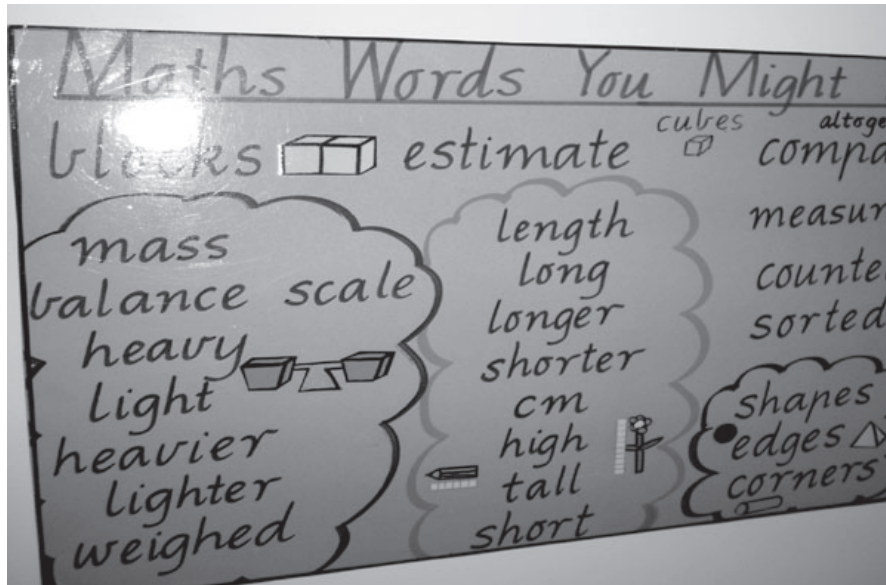 Maths Words You Might
blocks estimate cubes altoge
compa
mass
balance scale
heavy
light
heavier
lighter
weighed
length
long
longer
shorter
cm
high
tall
short
measur
counte
sorted
shapes
edges
corners